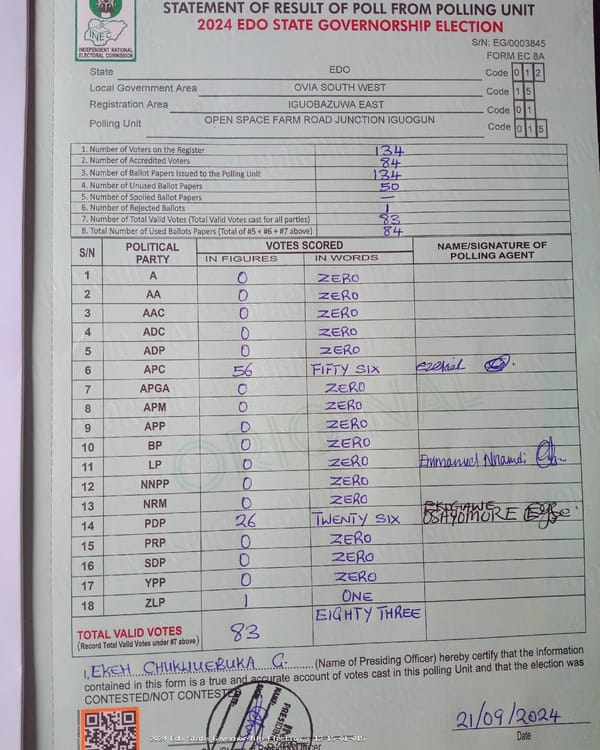 STATEMENT OF RESULT OF POLL FROM POLLING UNIT
2024 EDO STATE GOVERNORSHIP ELECTION
INEC
INDEPENDENT NATIONAL
ELECTORAL COMMISSION
S/N: EG/0003845
FORM EC 8A
State EDO Code 012
Local Government Area OVIA SOUTH WEST Code 15
Registration Area IGUOBAZUWA EAST Code 01
Polling Unit OPEN SPACE FARM ROAD JUNCTION IGUOGUN Code 015
1. Number of Voters on the Register 134
2. Number of Accredited Voters 84
3. Number of Ballot Papers Issued to the Polling Unit 134
4. Number of Unused Ballot Papers 50
5. Number of Spoiled Ballot Papers —
6. Number of Rejected Ballots 1
7. Number of Total Valid Votes (Total Valid Votes cast for all parties) 83
8. Total Number of Used Ballots Papers (Total of #5 + #6 + #7 above) 84
S/N POLITICAL PARTY VOTES SCORED NAME/SIGNATURE OF POLLING AGENT
IN FIGURES IN WORDS
1 A 0 ZERO
2 AA 0 ZERO
3 AAC 0 ZERO
4 ADC 0 ZERO
5 ADP 0 ZERO
6 APC 56 FIFTY SIX ezekiel
7 APGA 0 ZERO
8 APM 0 ZERO
9 APP 0 ZERO
10 BP 0 ZERO
11 LP 0 ZERO Emmanuel Nnamdi
12 NNPP 0 ZERO
13 NRM 0 ZERO
14 PDP 26 TWENTY SIX OSAYOMORE
15 PRP 0 ZERO
16 SDP 0 ZERO
17 YPP 0 ZERO
18 ZLP 1 ONE
TOTAL VALID VOTES 83 EIGHTY THREE
(Record Total Valid Votes under #7 above)
I, EKEH CHUKWUEBUKA G. (Name of Presiding Officer) hereby certify that the information
contained in this form is a true and accurate account of votes cast in this polling Unit and that the election was
CONTESTED/NOT CONTESTED
21/09/2024
Date
2024 Edo State Governorship Election - 12-15-01-015
ORIGINAL